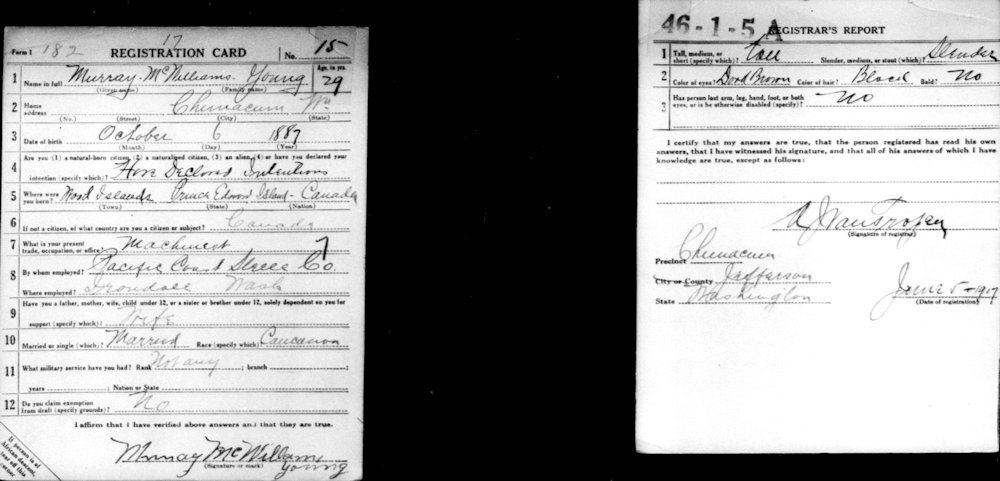 Form 1 182 17
REGISTRATION CARD No. 15
1 Name in full Murray McWilliams Young Age, in yrs. 29
(Given name) (Family name)
2 Home address Chimacum Wn
(No.) (Street) (City) (State)
3 Date of birth October 6 1887
(Month) (Day) (Year)
4 Are you (1) a natural-born citizen, (2) a naturalized citizen, (3) an alien, (4) or have you declared your
intention (specify which)? Have Declared Intentions
5 Where were you born? Wood Islands Prince Edward Island Canada
(Town) (State) (Nation)
6 If not a citizen, of what country are you a citizen or subject? Canada
7 What is your present trade, occupation, or office? Machinest 7
8 By whom employed? Pacific Coast Steele Co.
Where employed? Irondale Wash
9 Have you a father, mother, wife, child under 12, or a sister or brother under 12, solely dependent on you for
support (specify which)? Wife
10 Married or single (which)? Married Race (specify which)? Caucasion
11 What military service have you had? Rank Not any ; branch ;
years ; Nation or State
12 Do you claim exemption from draft (specify grounds)? No
I affirm that I have verified above answers and that they are true.
Murray McWilliams
Young
(Signature or mark)
If person is of
African descent,
tear off this
corner.
46-1-5 A REGISTRAR'S REPORT
1 Tall, medium, or short (specify which)? tall Slender, medium, or stout (which)? Slender
2 Color of eyes? Dark Brown Color of hair? Black Bald? No
3 Has person lost arm, leg, hand, foot, or both eyes, or is he otherwise disabled (specify)? No
I certify that my answers are true, that the person registered has read his own
answers, that I have witnessed his signature, and that all of his answers of which I have
knowledge are true, except as follows:
(Signature of registrar)
Precinct Chimacum
City or County Jefferson
State Washington
June 5-1917
(Date of registration)